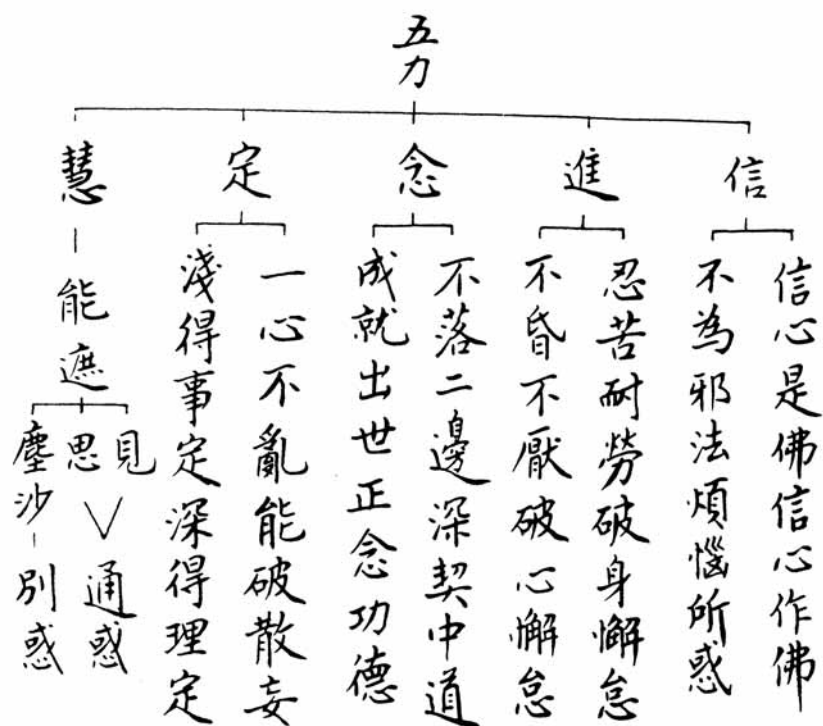 五力
信
信心是佛信心作佛
不為邪法煩惱所惑
進
忍苦耐勞破身懈怠
不昏不厭破心懈怠
念
不落二邊深契中道
成就出世正念功德
定
一心不亂能破散妄
淺得事定深得理定
慧
能遮
見
思
通惑
塵沙
別惑